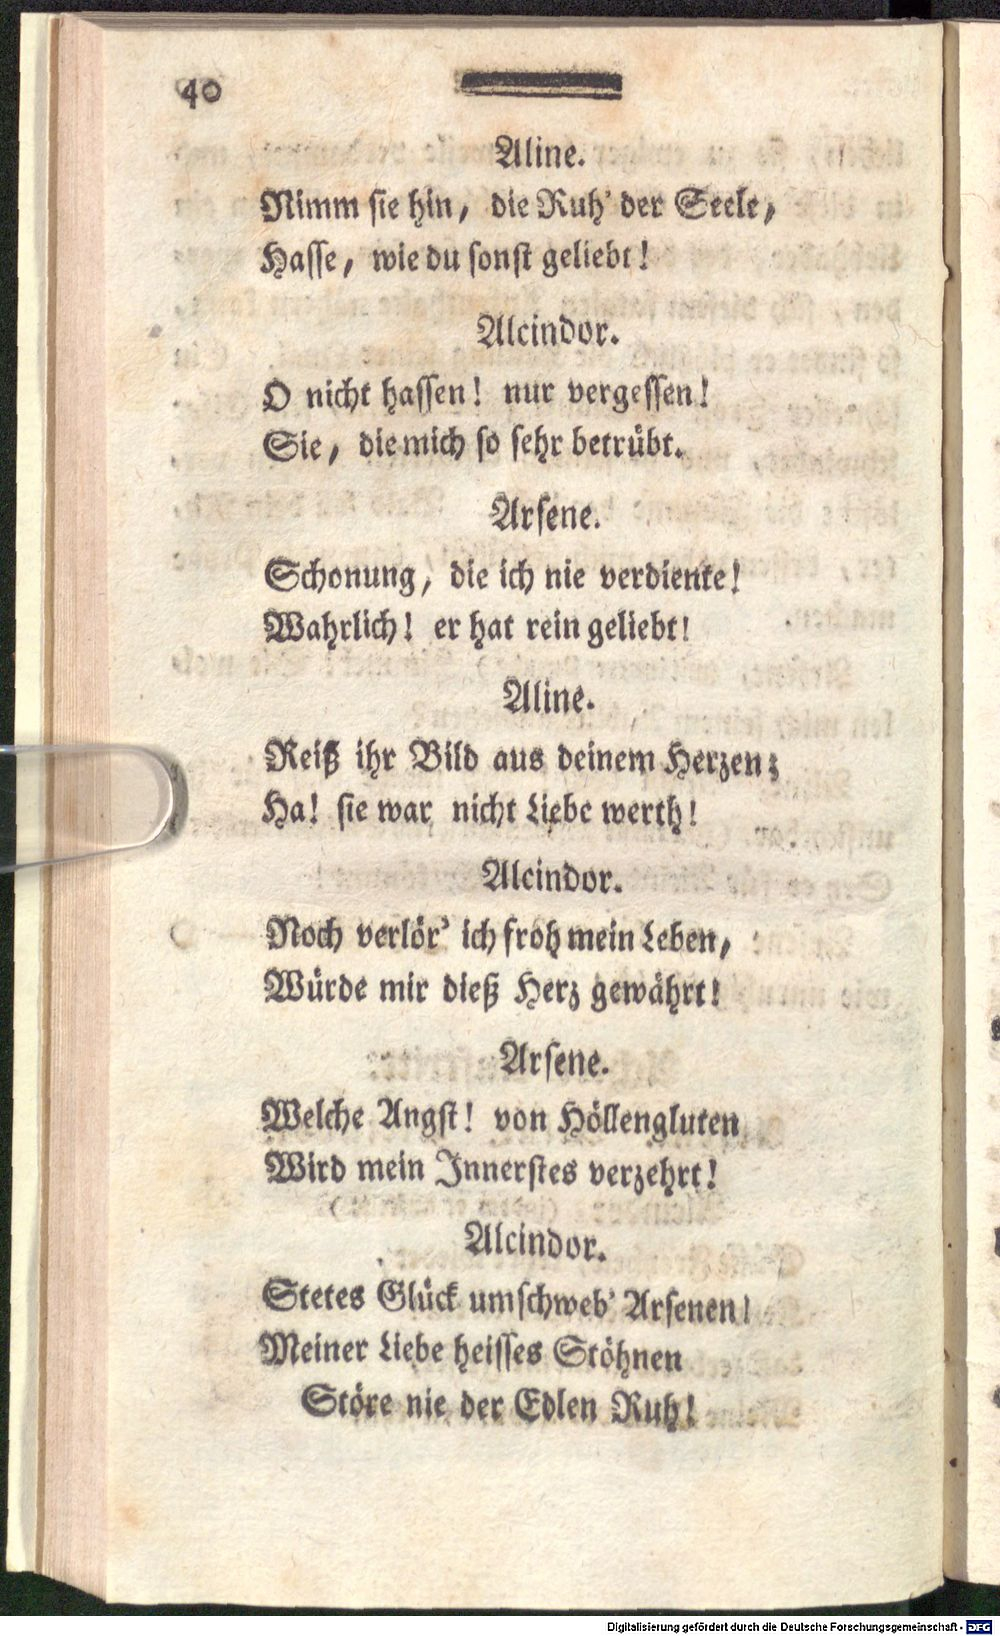 40
Aline.
Nimm sie hin, die Ruh' der Seele,
Hasse, wie du sonst geliebt!
Alcindor.
O nicht hassen! nur vergessen!
Sie, die mich so sehr betrübt.
Arsene.
Schonung, die ich nie verdiente!
Wahrlich! er hat rein geliebt!
Aline.
Reiß ihr Bild aus deinem Herzen;
Ha! sie war nicht Liebe werth!
Alcindor.
Noch verlör' ich froh mein Leben,
Würde mir dieß Herz gewährt!
Arsene.
Welche Angst! von Höllengluten
Wird mein Innerstes verzehrt!
Alcindor.
Stetes Glück umschweb' Arsenen!
Meiner Liebe heisses Stöhnen
Störe nie der Edlen Ruh!
Digitalisierung gefördert durch die Deutsche Forschungsgemeinschaft - DFG